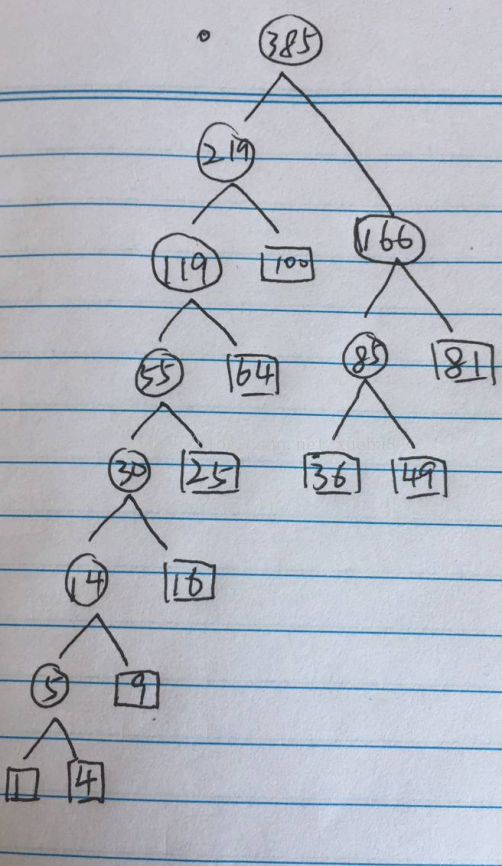 385
219
166
119 100
85 81
55 64
30 25 36 49
14 16
5 9
1 4